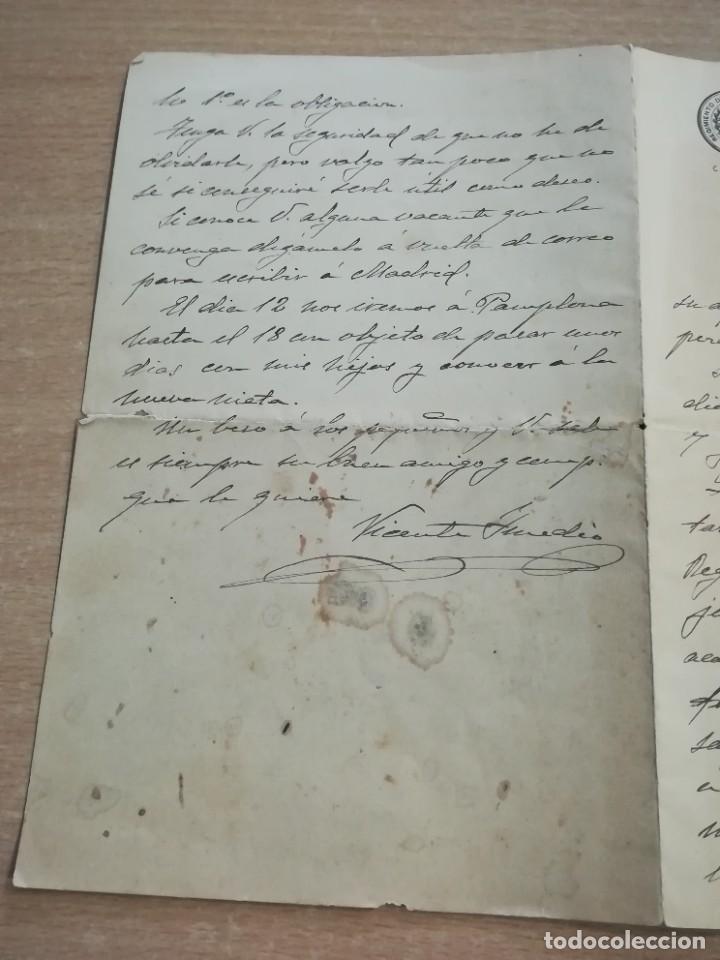 lo 1º es la obligacion.
Tenga V. la seguridad de que no he de
olvidarle, pero valgo tan poco que no
sé si conseguiré serle útil como deseo.
Si conoce V. alguna vacante que le
convenga digámelo á vuelta de correo
para escribir á Madrid.
El dia 12 nos iremos á Pamplona
hasta el 18 con objeto de pasar unos
dias con mis hijos y conocer á la
nueva nieta.
Un beso á los pequeños y V. sabe
es siempre su buen amigo y comp.
que le quiere
Vicente
REGIMIENTO
su
pero
y
todocoleccion.net